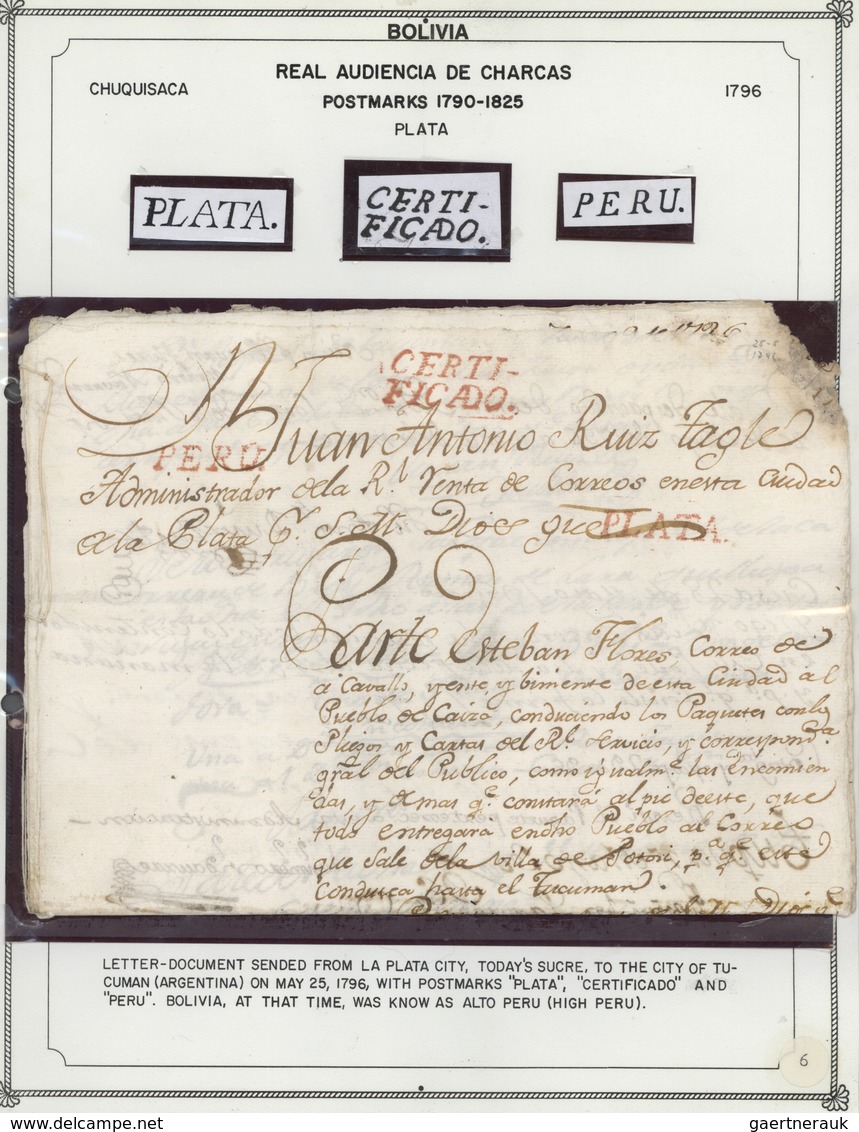 BOLIVIA
REAL AUDIENCIA DE CHARCAS
CHUQUISACA
1796
POSTMARKS 1790-1825
PLATA
PLATA.
CERTI-
FICADO.
PERU.
1796
25-5
1796
CERTI-
FICADO.
Juan Antonio Ruiz Tagle
PERU.
Administrador dela Rl. Renta de Correos enesta Ciudad
dela Plata Pr. S. M. Dios gue
PLATA.
Parte Esteban Flores, Correo de
á Cavallo, yente, y biniente deesta Ciudad al
Pueblo de Caiza, conduciendo los Paquetes conlos
Pliegos y Cartas del Rl. Servicio, y correspondª.
gral del Publico, como ygualmte. las Encomien
das, y demas qe. constará al pie deeste, que
todo entregará endho Pueblo al Correo
que sale dela villa de Potosi, pª. qe. este
Conduzca hasta el Tucuman.
LETTER-DOCUMENT SENDED FROM LA PLATA CITY, TODAY'S SUCRE, TO THE CITY OF TU-
CUMAN (ARGENTINA) ON MAY 25, 1796, WITH POSTMARKS "PLATA", "CERTIFICADO" AND
"PERU". BOLIVIA, AT THAT TIME, WAS KNOW AS ALTO PERU (HIGH PERU).
6
gaertnerauk